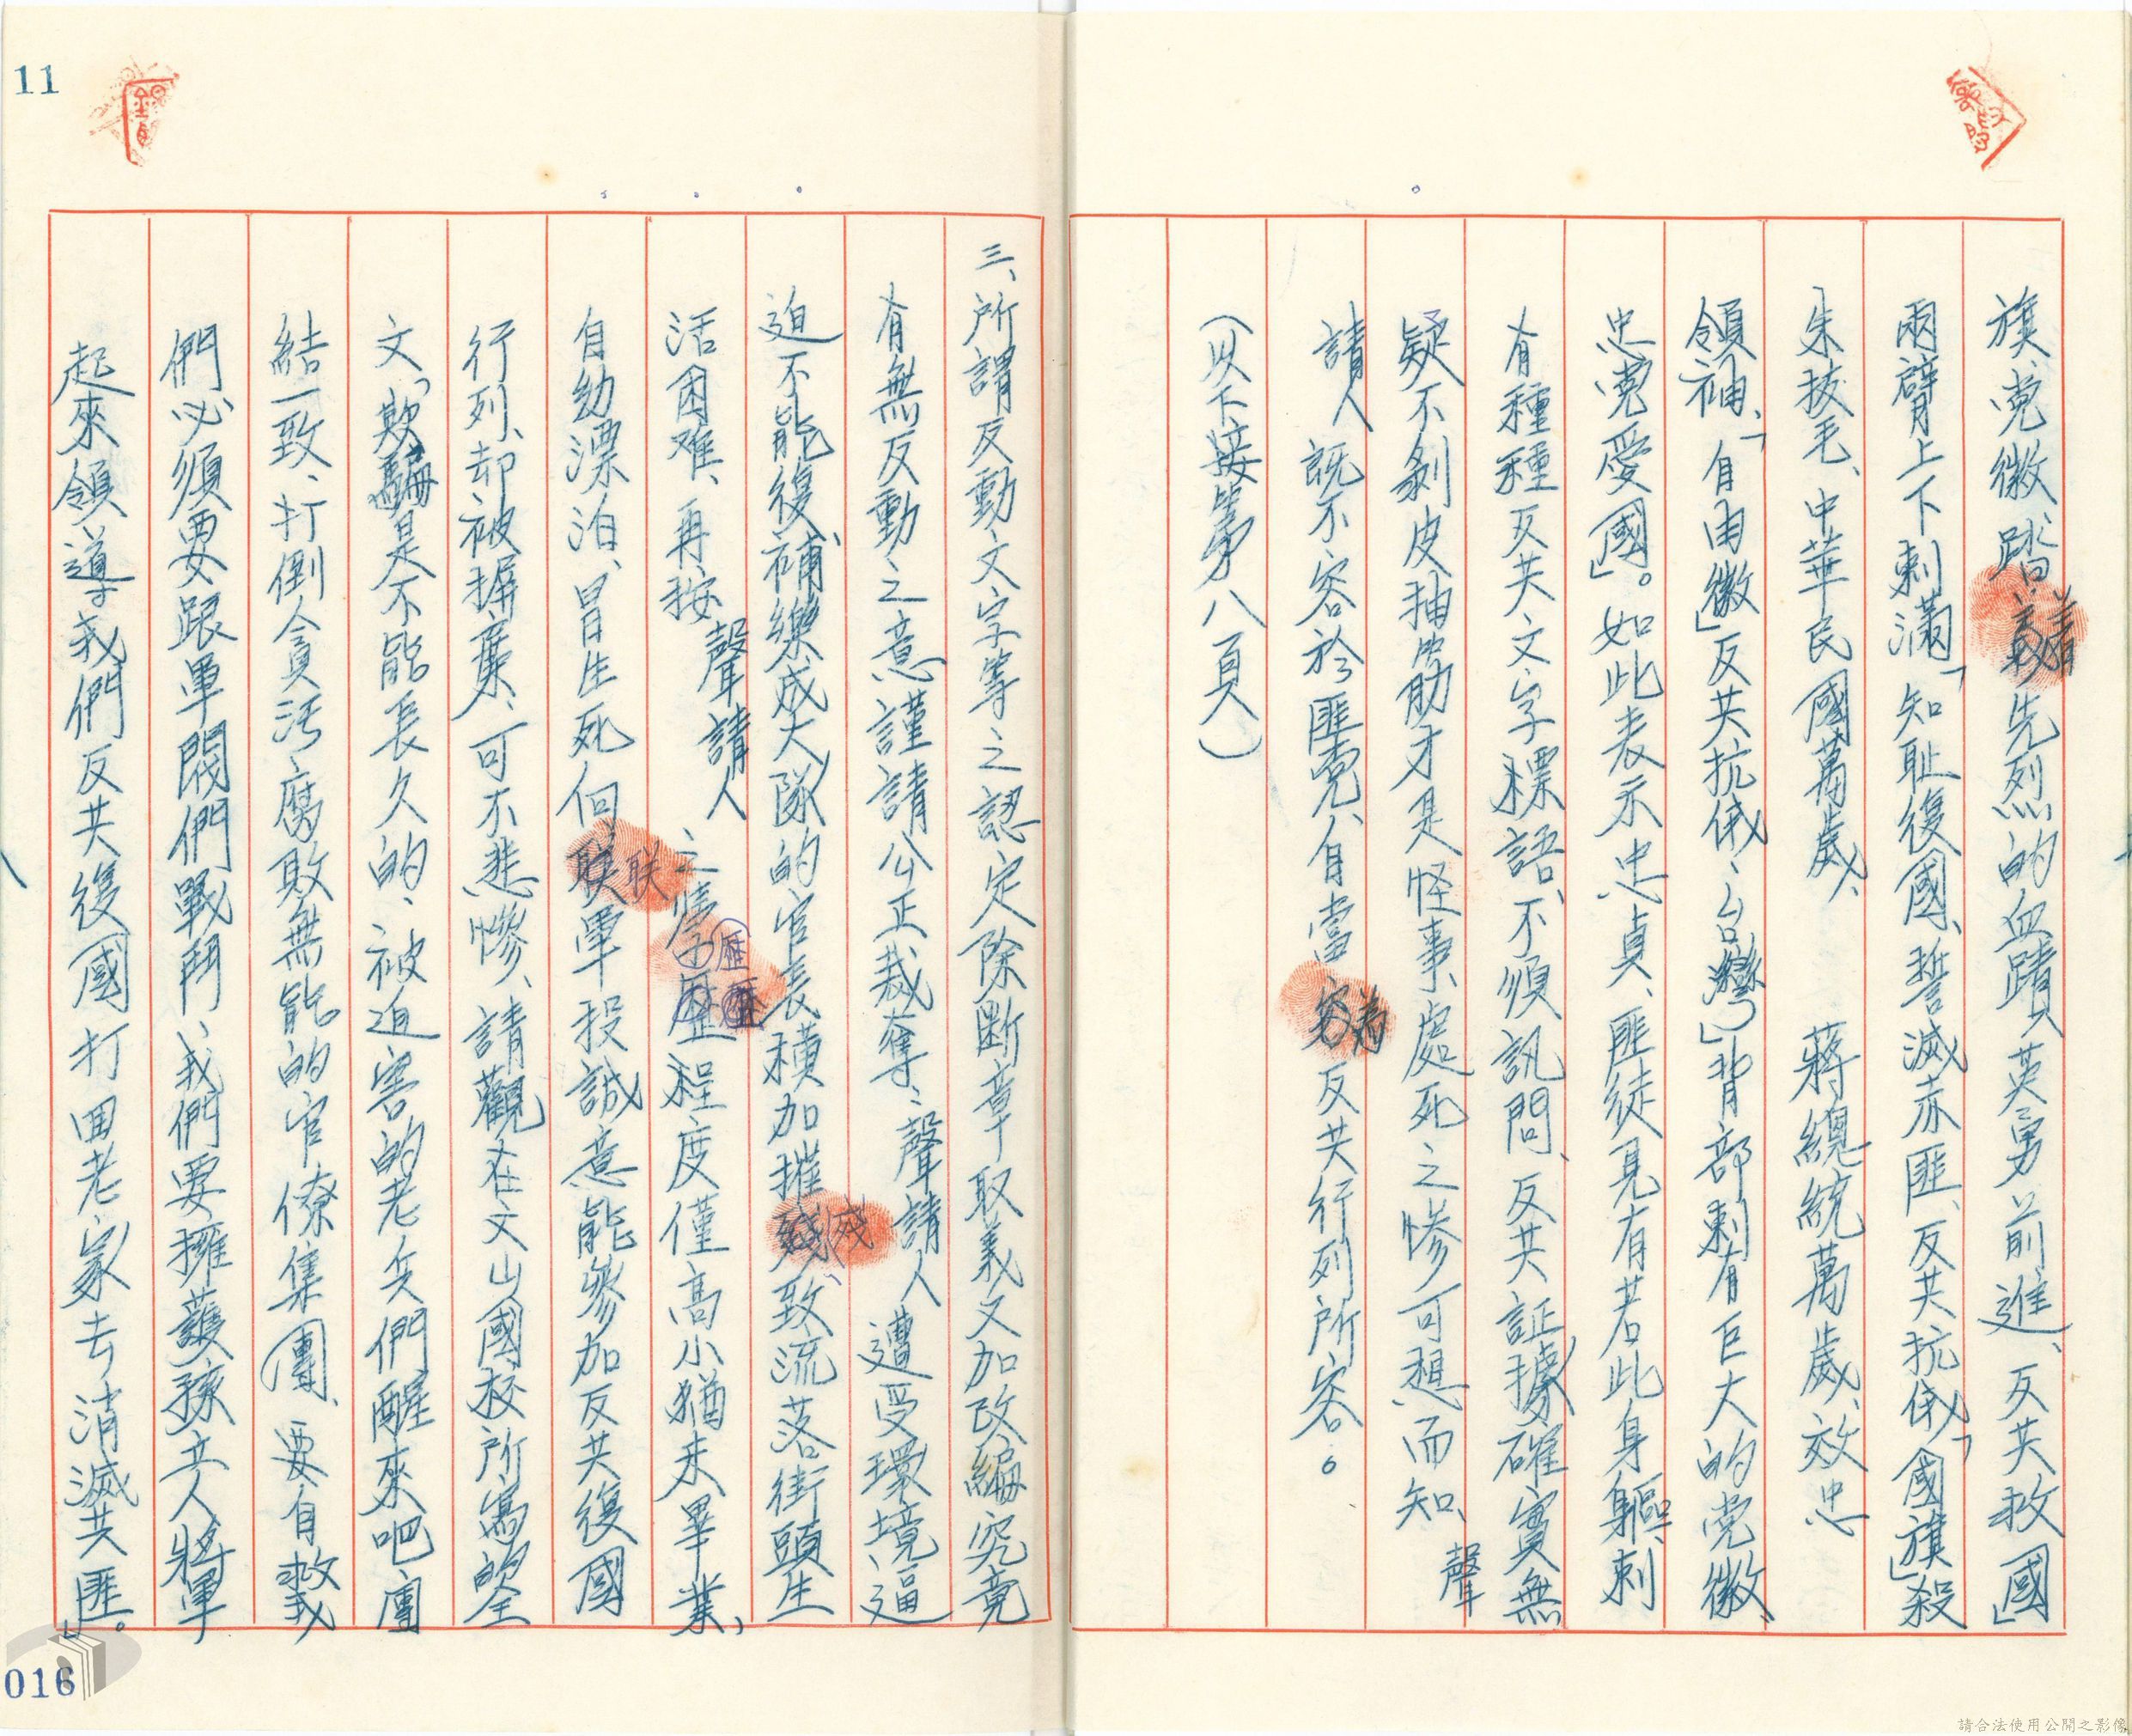 旗、党徽、踏着先烈的血蹟英勇前進、反共救國」
兩臂上下刺滿「知耻復國、誓滅赤匪、反共抗俄、「國旗」殺
朱拔毛、中華民國萬歲、　蔣總統萬歲、效忠
領袖、「自由徽」反共抗俄、台灣」背部刺有巨大的党徽、
忠党愛國」。如此表示忠貞、匪徒見有若此身軀、刺
有種種反共文字標語、不須訊問、反共証據確實無
疑不剝皮抽筋才是怪事、處死之慘可想而知、聲
請人既不容於匪党、自當為反共行列所容。
（以下接第八頁）
三、所謂反動文字等之認定除断章取義又加改編究竟
有無反動之意謹請公正裁奪、聲請人遭受環境逼
迫不能復補樂成大隊的官長積加摧殘致流落街頭生
活困难、再按聲請人之學歷程度僅高小猶未畢業、
自幼漂泊、冒生死向联軍投誠意能參加反共復國
行列、却被摒棄、可不悲慘、請觀在文山國校所寫的全
文、「欺騙是不能長久的、被迫害的老兵們醒來吧團
結一致、打倒貪污腐敗無能的官僚集團、要自救我
們必須要跟軍閥們戰鬥、我們要擁護孫立人將軍
起來領導我們反共復國打回老家去消滅共匪」。
11
016
請合法使用公開之影像